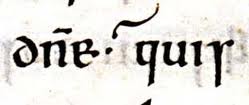 dn̄e · quis